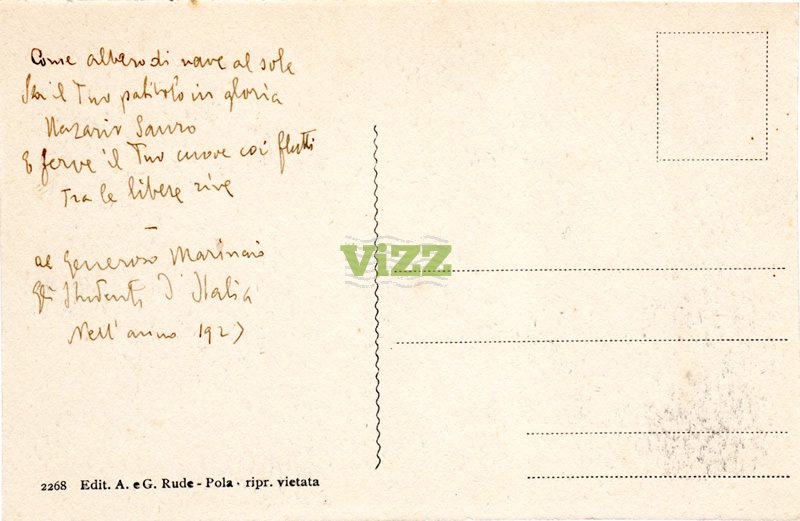 Come albero di nave al sole
Sta il Tuo patibolo in gloria
Nazario Sauro
E ferve il Tuo cuore coi flutti
Tra le libere rive
—
al Generoso Marinaio
gli Studenti d'Italia
Nell'anno 1927
ViZZ
2268 Edit. A. e G. Rude - Pola · ripr. vietata